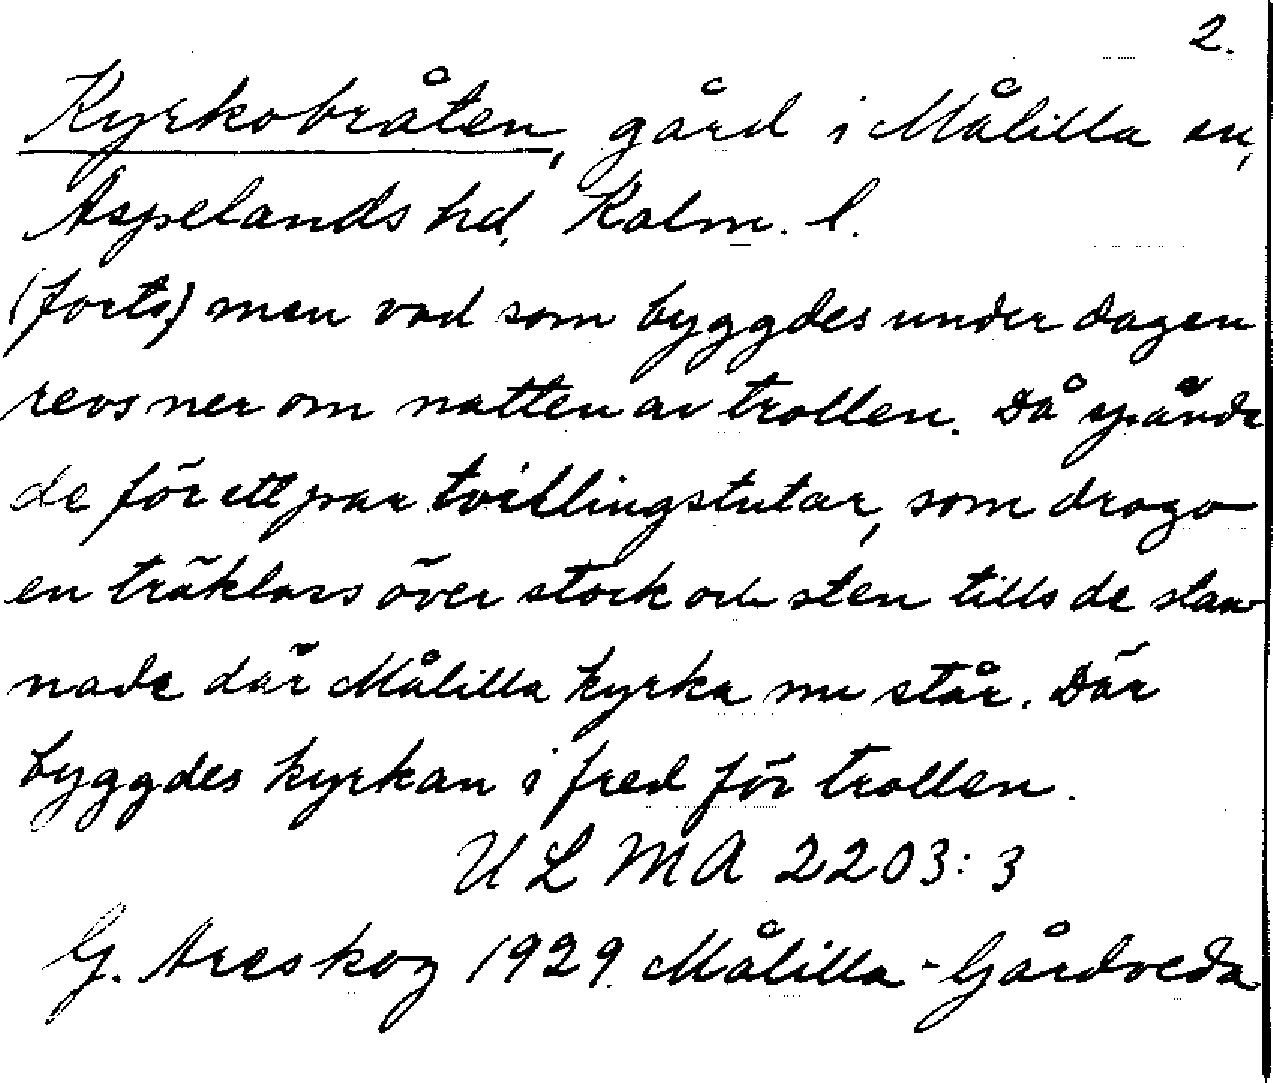 2.
Kyrkobråten, gård i Målilla sn,
Aspelands hd, Kalm. l.
(forts.) men vad som byggdes under dagen
revs ner om natten av trollen. Då spände
de för ett par tvillingstutar, som drogo
en träklass över stock och sten tills de stan-
nade där Målilla kyrka nu står. Där
byggdes kyrkan i fred för trollen.
ULMA 2203:3
G. Areskog 1929. Målilla-Gårdveda